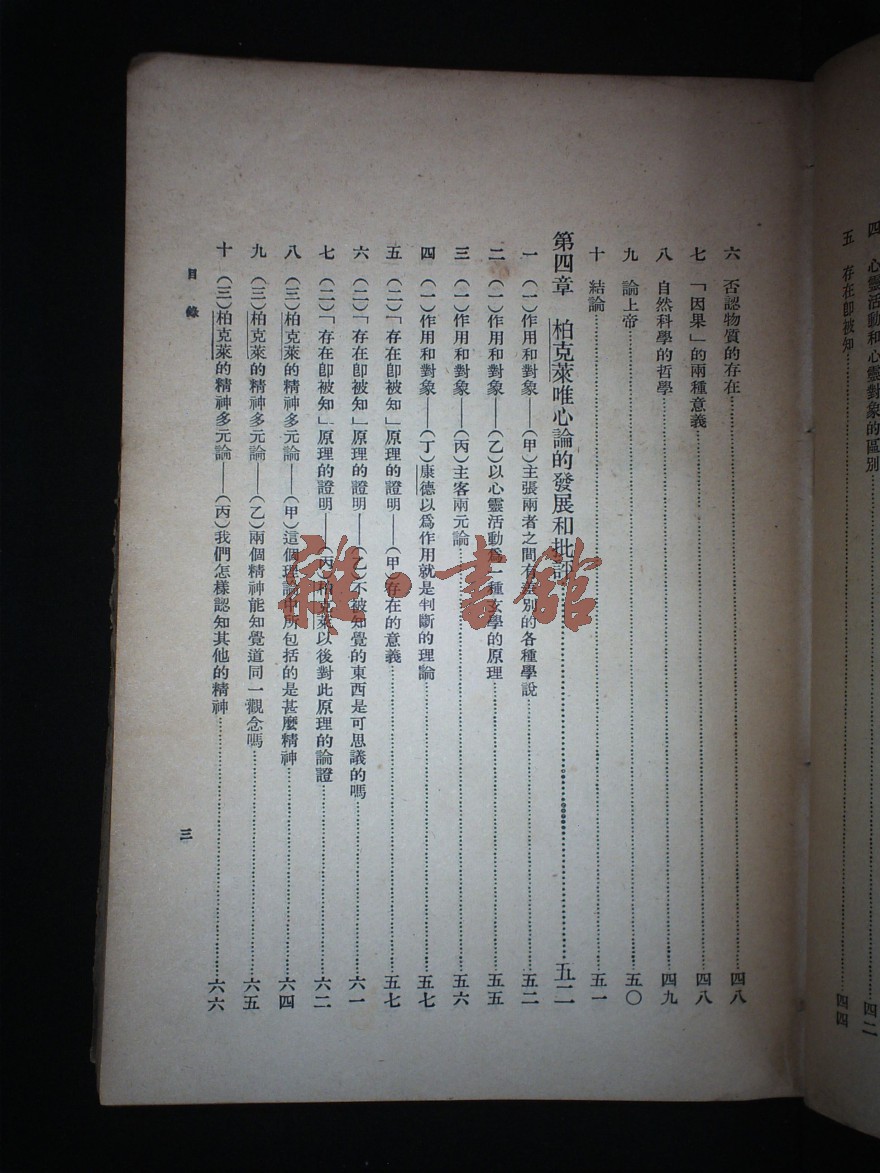 四　心靈活動和心靈對象的區別……四二
五　存在卽被知……四四
六　否認物質的存在……四八
七　「因果」的兩種意義……四八
八　自然科學的哲學……四九
九　論上帝……五〇
十　結論……五一
第四章　柏克萊唯心論的發展和批評……五二
一　（一）作用和對象——（甲）主張兩者之間有差別的各種學說……五二
二　（一）作用和對象——（乙）以心靈活動爲一種玄學的原理……五五
三　（一）作用和對象——（丙）主客兩元論……五六
四　（一）作用和對象——（丁）康德以爲作用就是判斷的理論……五七
五　（二）「存在卽被知」原理的證明——（甲）存在的意義……五七
六　（二）「存在卽被知」原理的證明——（乙）不被知覺的東西是可思議的嗎……六一
七　（二）「存在卽被知」原理的證明——（丙）柏克萊以後對此原理的論證……六二
八　（三）柏克萊的精神多元論——（甲）這個理論中所包括的是甚麼精神……六四
九　（三）柏克萊的精神多元論——（乙）兩個精神能知覺道同一觀念嗎……六五
十　（三）柏克萊的精神多元論——（丙）我們怎樣認知其他的精神……六六
目錄
三
雜·書館